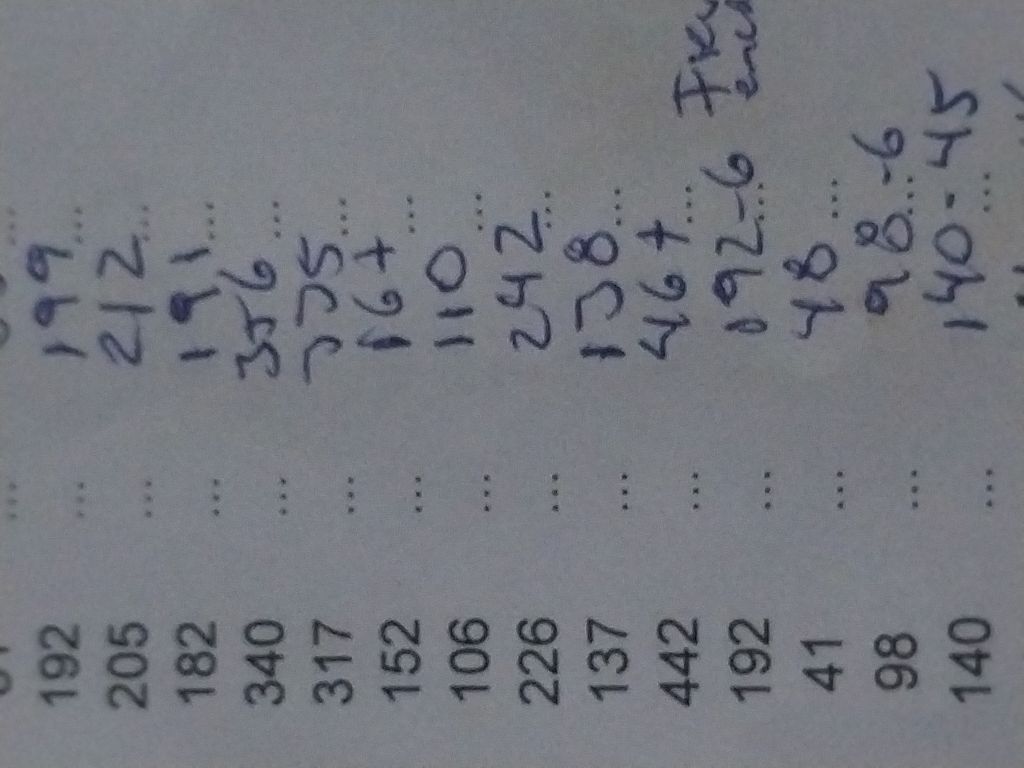 192 ... 199 ...
205 ... 212 ...
182 ... 191 ...
340 ... 356 ...
317 ... 335 ...
152 ... 167 ...
106 ... 110 ...
226 ... 242 ...
137 ... 138 ...
442 ... 467 ...
192 ... 192-6 ...
41 ... 48 ...
98 ... 98-6 ...
140 ... 140-45 ...